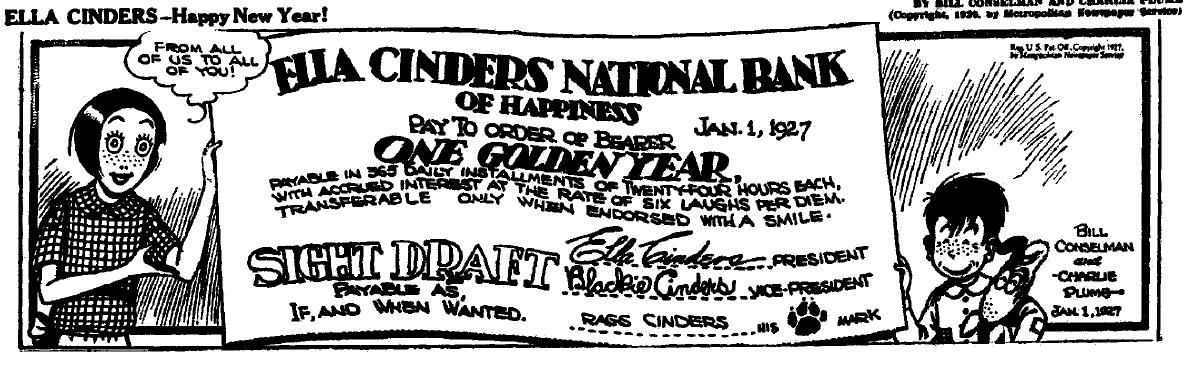 ELLA CINDERS—Happy New Year!
BY BILL CONSELMAN AND CHARLIE PLUMB
(Copyright, 1926, by Metropolitan Newspaper Service)
FROM ALL
OF US TO ALL
OF YOU!
ELLA CINDERS NATIONAL BANK
OF HAPPINESS
PAY TO ORDER OF BEARER JAN. 1, 1927
ONE GOLDEN YEAR,
PAYABLE IN 365 DAILY INSTALLMENTS OF TWENTY-FOUR HOURS EACH,
WITH ACCRUED INTEREST AT THE RATE OF SIX LAUGHS PER DIEM.
TRANSFERABLE ONLY WHEN ENDORSED WITH A SMILE.
SIGHT DRAFT
PAYABLE AS,
IF, AND WHEN WANTED.
Ella Cinders PRESIDENT
Blackie Cinders VICE-PRESIDENT
RAGS CINDERS HIS MARK
Reg. U. S. Pat. Off., Copyright 1927,
by Metropolitan Newspaper Service
BILL
CONSELMAN
and
CHARLIE
PLUMB—
JAN. 1, 1927